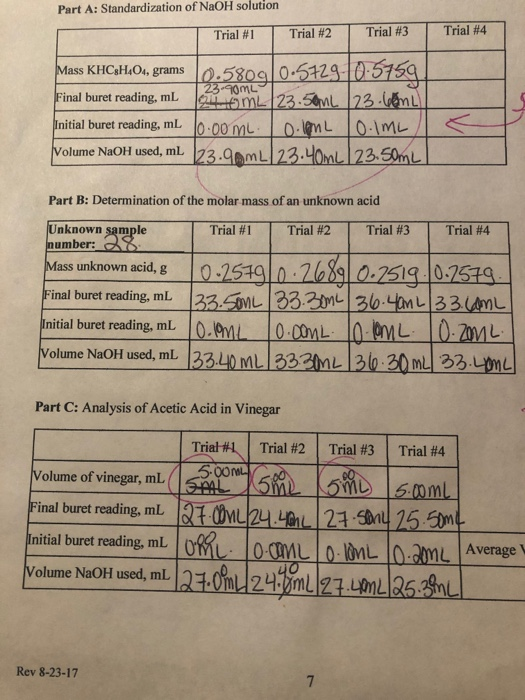 Part A: Standardization of NaOH solution
Trial #1 Trial #2 Trial #3 Trial #4
Mass KHC₈H₄O₄, grams 0.580g 0.572g 0.575g
23.90mL
Final buret reading, mL mL 23.50mL 23.60mL
Initial buret reading, mL 0.00 mL 0.10mL 0.1mL
Volume NaOH used, mL 23.90mL 23.40mL 23.50mL
Part B: Determination of the molar mass of an unknown acid
Unknown sample Trial #1 Trial #2 Trial #3 Trial #4
number: 28
Mass unknown acid, g 0.257g 0.268g 0.251g 0.257g
Final buret reading, mL 33.50mL 33.30mL 36.40mL 33.60mL
Initial buret reading, mL 0.10mL 0.00mL 0.10mL 0.20mL
Volume NaOH used, mL 33.40 mL 33.30mL 36.30 mL 33.40mL
Part C: Analysis of Acetic Acid in Vinegar
Trial #1 Trial #2 Trial #3 Trial #4
5.00mL 00 00
Volume of vinegar, mL 5mL 5mL 5mL 5.00mL
Final buret reading, mL 27.00mL 24.40mL 27.50mL 25.50mL
Initial buret reading, mL 0mL 0.00mL 0.10mL 0.20mL Average
40
Volume NaOH used, mL 27.0mL 24.mL 27.40mL 25.30mL
Rev 8-23-17
7